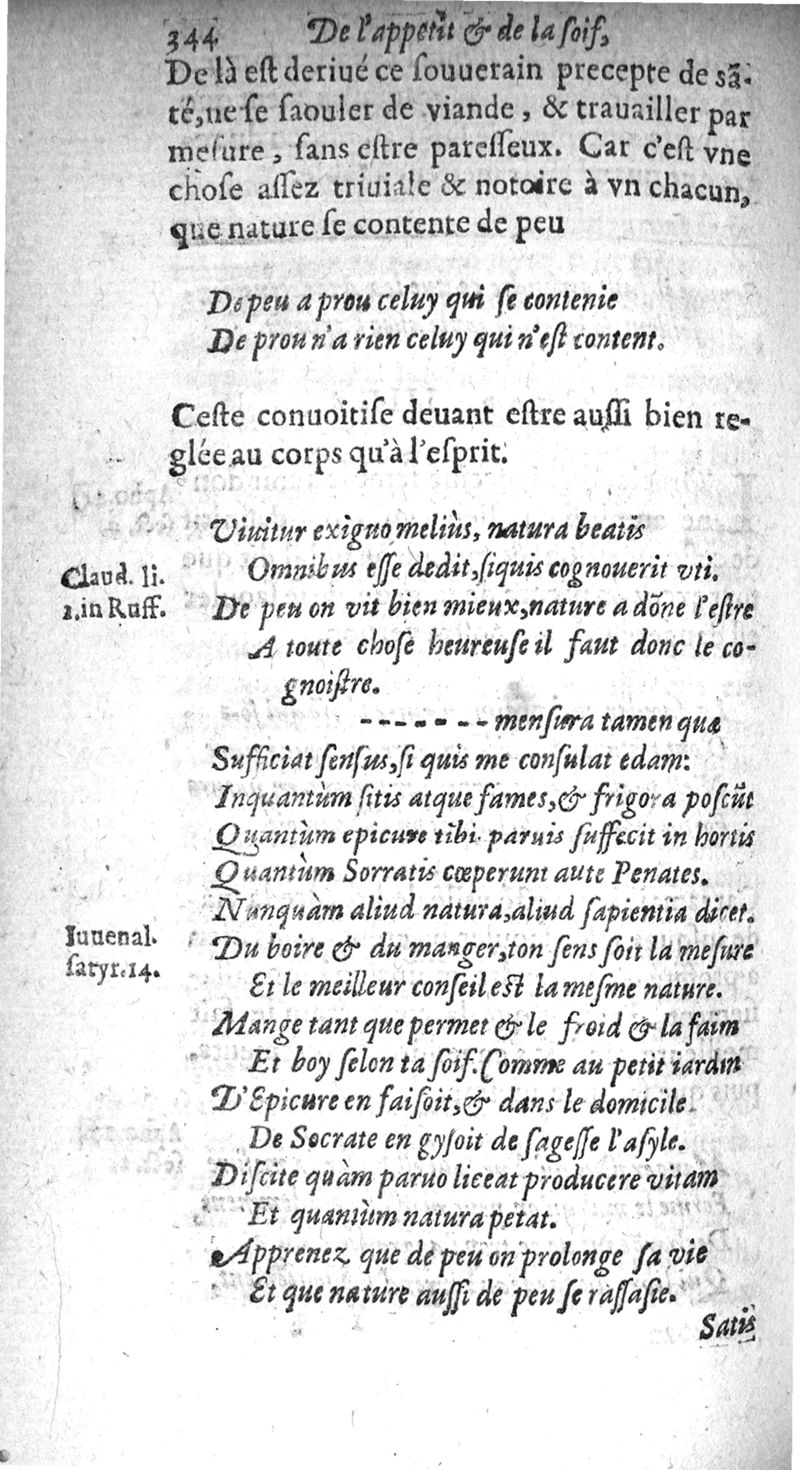 344 De l'appetit & de la soif,
De là est deriué ce souuerain precepte de sã-
té, ne se saouler de viande, & trauailler par
mesure, sans estre paresseux. Car c'est vne
chose assez triuiale & notoire à vn chacun,
que nature se contente de peu
De peu a prou celuy qui se contente
De prou n'a rien celuy qui n'est content.
Ceste conuoitise deuant estre aussi bien re-
glée au corps qu'à l'esprit.
Viuitur exiguo meliùs, natura beatis
Claud. li.
Omnibus esse dedit, siquis cognouerit vti.
1. in Ruff.
De peu on vit bien mieux, nature a dõne l'estre
A toute chose heureuse il faut donc le co-
gnoistre.
------- mensura tamen quæ
Sufficiat sensus, si quis me consulat edam:
Inquantùm sitis atque fames, & frigora poscũt
Quantùm epicure tibi paruis suffecit in hortis
Quantùm Sorratis cœperunt aute Penates.
Nunquàm aliud natura, aliud sapientia dicet.
Iuuenal.
satyr. 14.
Du boire & du manger, ton sens soit la mesure
Et le meilleur conseil est la mesme nature.
Mange tant que permet & le froid & la faim
Et boy selon ta soif. Comme au petit iardin
D'Epicure en faisoit, & dans le domicile
De Socrate en gysoit de sagesse l'asyle.
Discite quàm paruo liceat producere vitam
Et quantùm natura petat.
Apprenez que de peu on prolonge sa vie
Et que nature aussi de peu se rassasie.
Satis